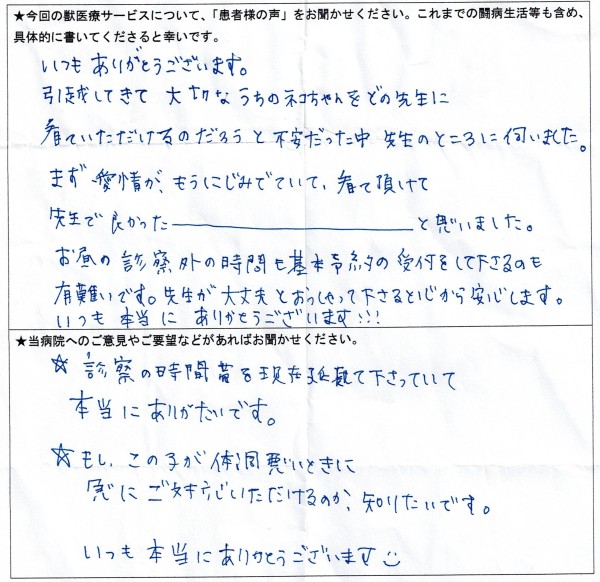 ★今回の獣医療サービスについて、「患者様の声」をお聞かせください。これまでの闘病生活等も含め、
具体的に書いてくださると幸いです。
いつもありがとうございます。
引越してきて 大切なうちのネコちゃんをどの先生に
看ていただけるのだろうと不安だった中 先生のところに伺いました。
まず 愛情が、もうにじみでていて、看て頂けて
先生で良かった――――――――と思いました。
お昼の診察外の時間も基本予約の受付をして下さるのも
有難いです。先生が大丈夫とおっしゃって下さると心から安心します。
いつも 本当に ありがとうございます!!!
★当病院へのご意見やご要望などがあればお聞かせください。
☆ 診察の時間帯を現在延長して下さっていて
本当にありがたいです。
☆ もし、この子が体調悪いときに
急にご対応いただけるのか、知りたいです。
いつも本当にありがとうございます